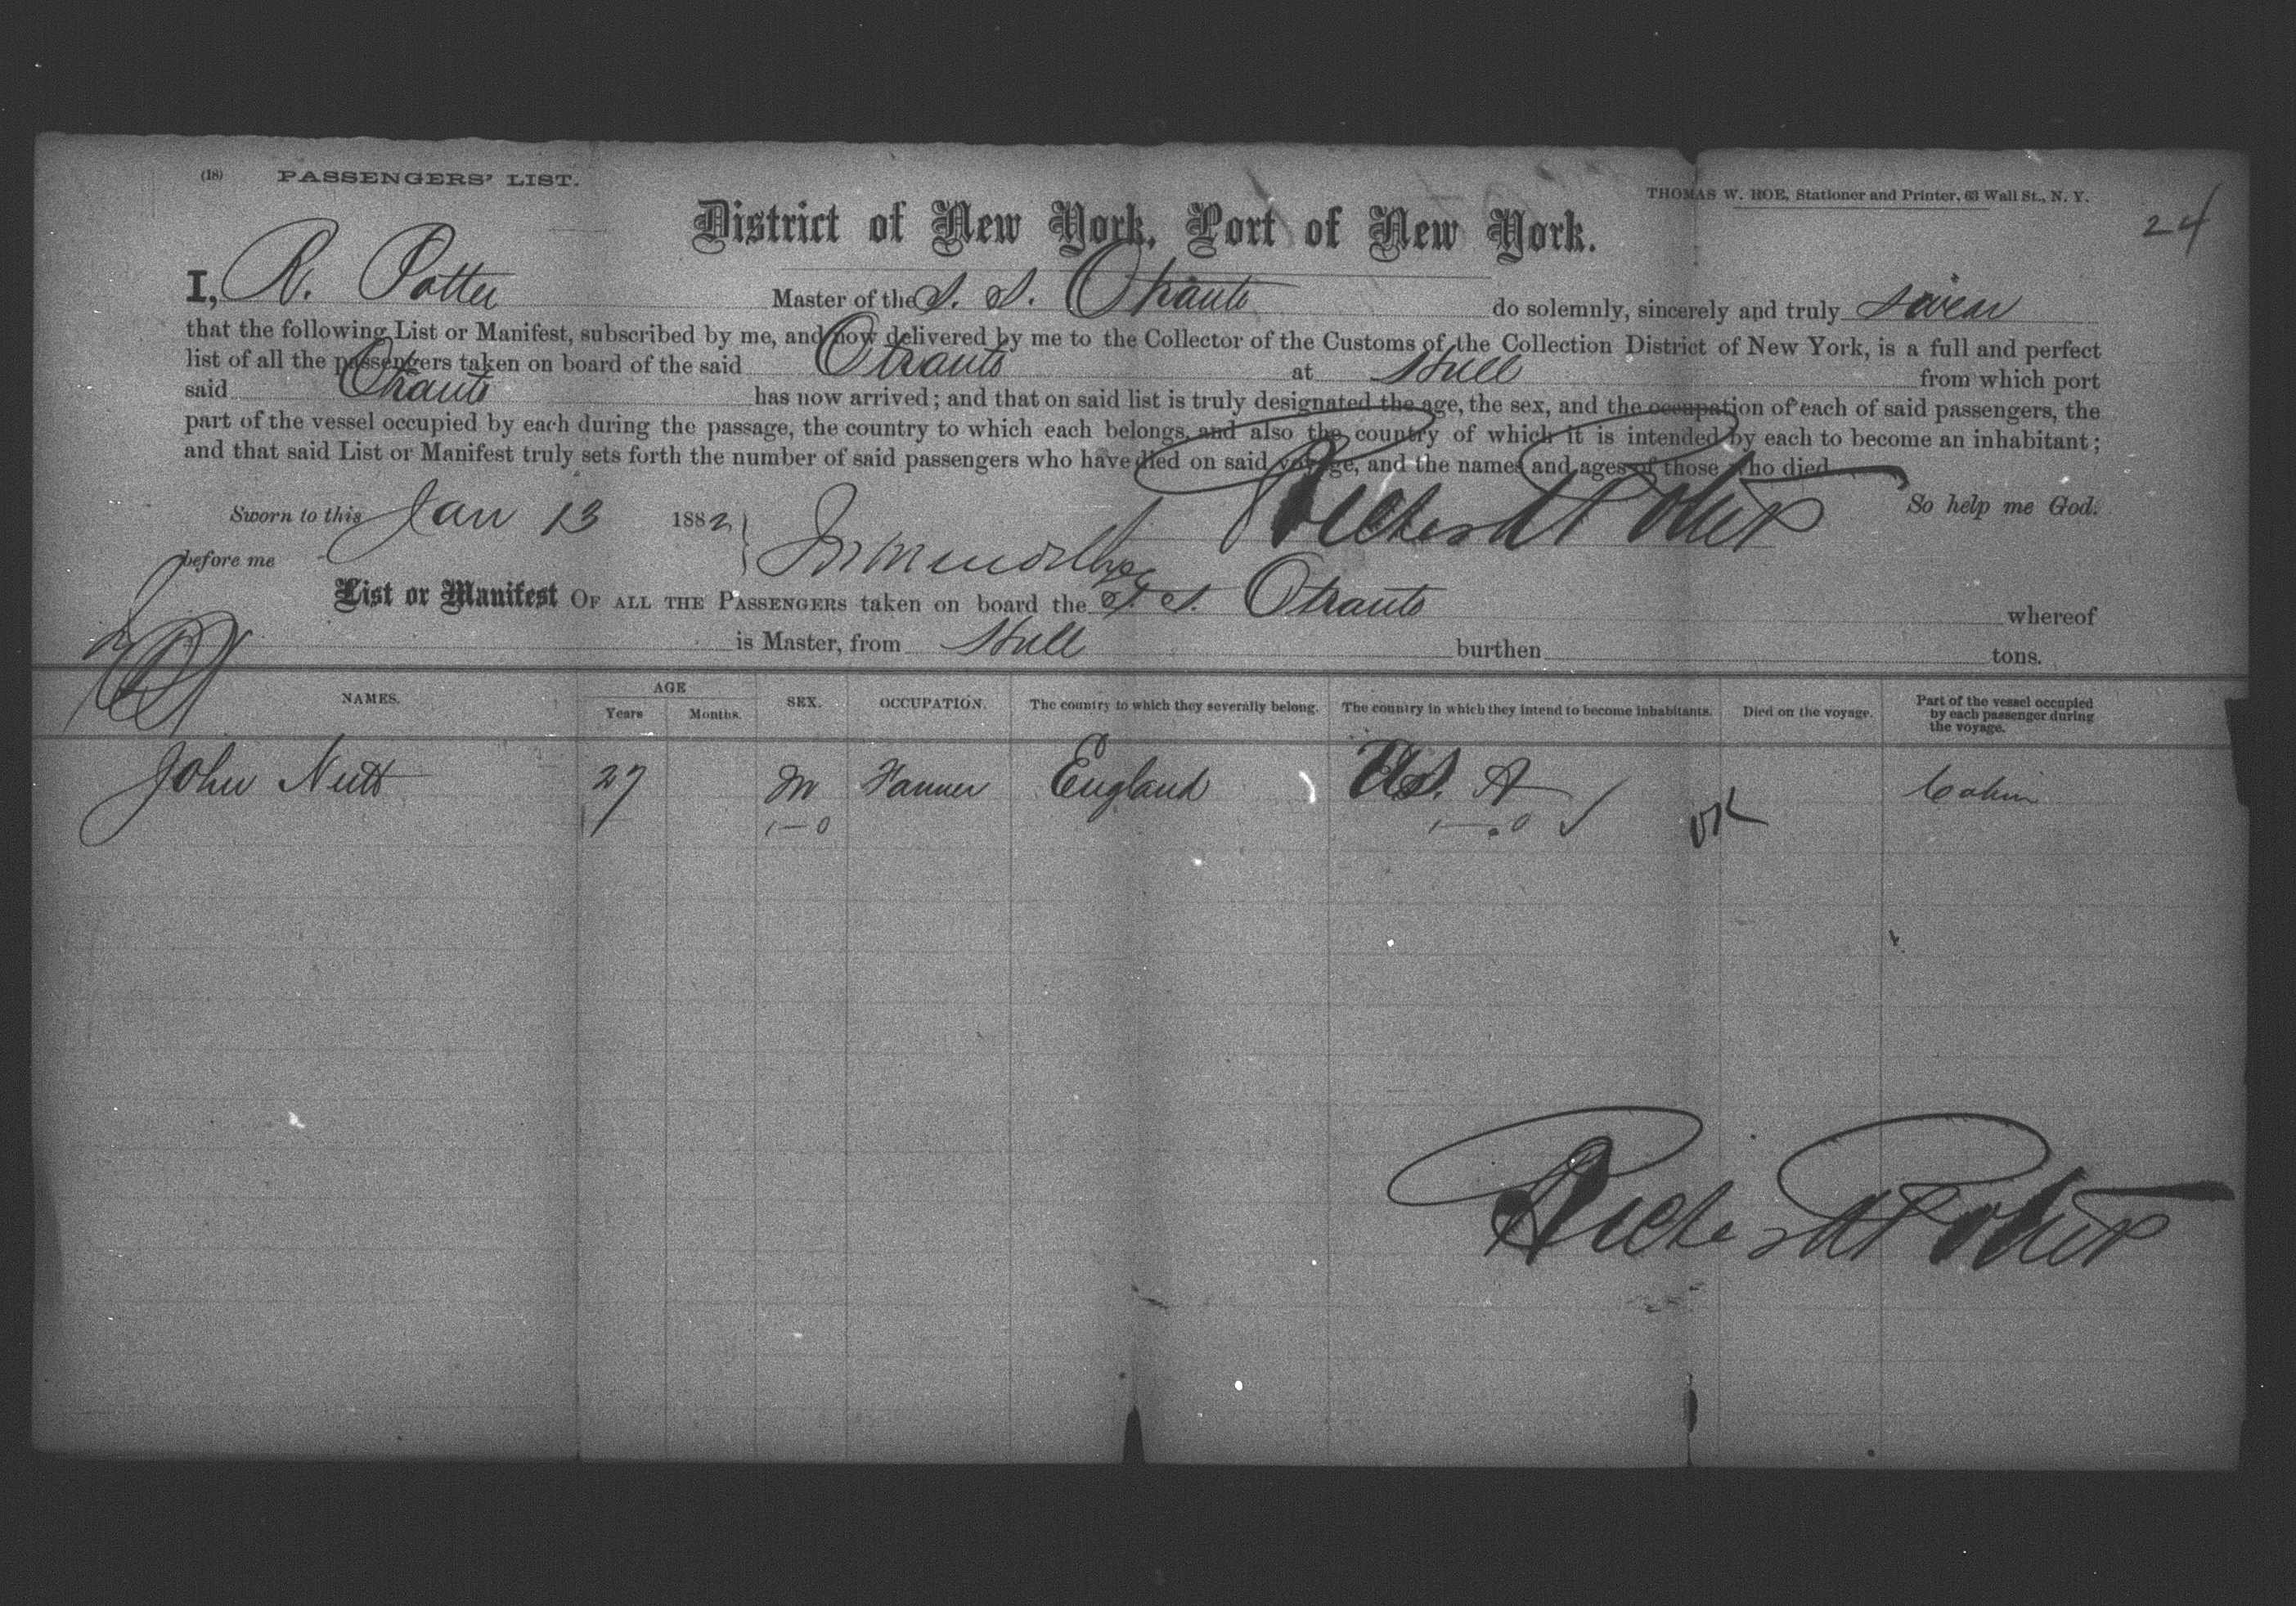 (18) PASSENGERS' LIST.
THOMAS W. ROE, Stationer and Printer, 63 Wall St., N. Y.
24
District of New York, Port of New York.
I, R. Potter Master of the S. S. Otranto do solemnly, sincerely and truly swear
that the following List or Manifest, subscribed by me, and now delivered by me to the Collector of the Customs of the Collection District of New York, is a full and perfect
list of all the passengers taken on board of the said Otranto at Hull from which port
said Otranto has now arrived; and that on said list is truly designated the age, the sex, and the occupation of each of said passengers, the
part of the vessel occupied by each during the passage, the country to which each belongs, and also the country of which it is intended by each to become an inhabitant;
and that said List or Manifest truly sets forth the number of said passengers who have died on said voyage, and the names and ages of those who died
Sworn to this Jan 13 1882 Richard Potter So help me God.
before me
List or Manifest OF ALL THE PASSENGERS taken on board the S. S. Otranto whereof
is Master, from Hull burthen tons.
NAMES. AGE Years Months. SEX. OCCUPATION. The country to which they severally belong. The country in which they intend to become inhabitants. Died on the voyage. Part of the vessel occupied by each passenger during the voyage.
John Nutt 27 M Farmer England U.S. A OK Cabin
1—0 1—0
Richard Potter